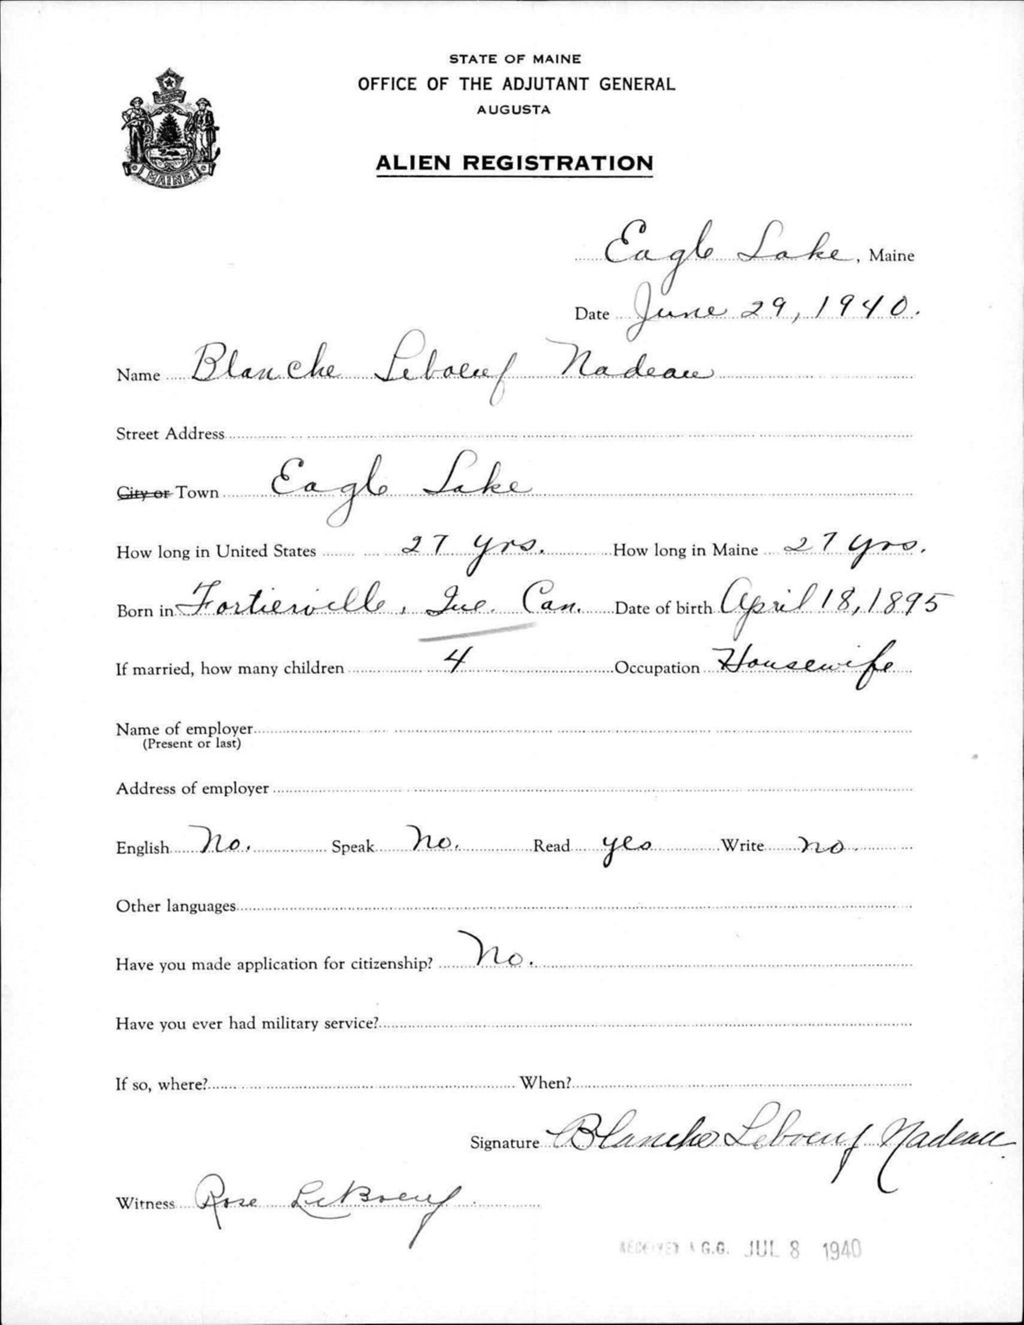 STATE OF MAINE
OFFICE OF THE ADJUTANT GENERAL
AUGUSTA
ALIEN REGISTRATION
MAINE
Eagle Lake, Maine
Date June 29, 1940.
Name Blanche Leboeuf Nadeau
Street Address
City or Town Eagle Lake
How long in United States 27 yrs. How long in Maine 27 yrs.
Born in Fortierville, Que. Can. Date of birth April 18, 1895
If married, how many children 4 Occupation Housewife
Name of employer
(Present or last)
Address of employer
English No. Speak No. Read yes Write no.
Other languages
Have you made application for citizenship? No.
Have you ever had military service?
If so, where? When?
Signature Blanche Leboeuf Nadeau.
Witness Rose LeBoeuf
RECEIVED A.G.O. JUL 8 1940